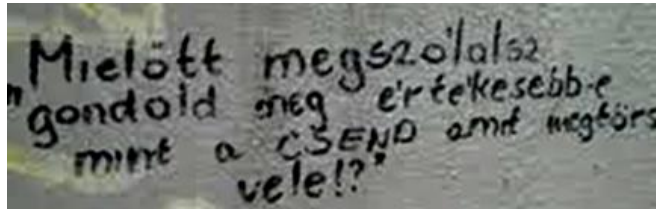 Mielőtt megszólalsz
"gondold meg értékesebb-e
mint a CSEND amit megtörs
vele!?"